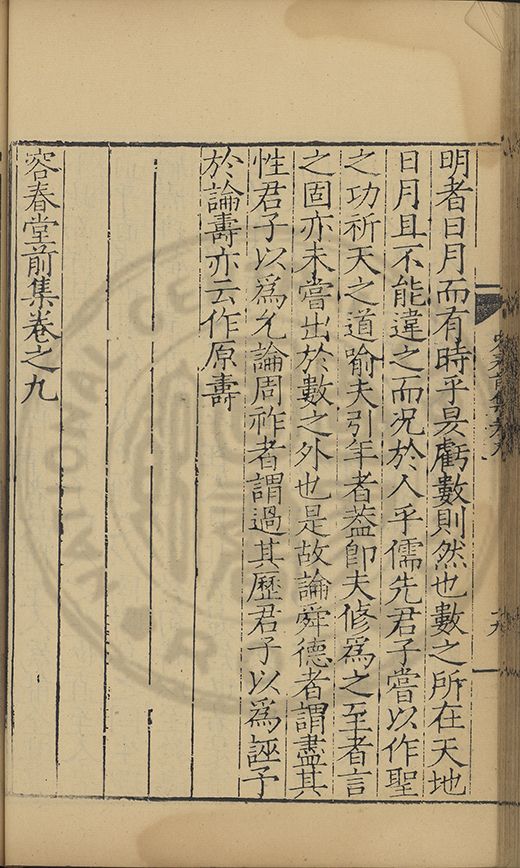 明者日月而有時乎昃虧數則然也數之所在天地
日月且不能違之而況於人乎儒先君子嘗以作聖
之功祈天之道喻夫引年者葢卽夫修爲之至者言
之固亦未嘗出於數之外也是故論舜德者謂盡其
性君子以爲允論周祚者謂過其歷君子以爲誣予
於論壽亦云作原壽
容春堂前集卷之九